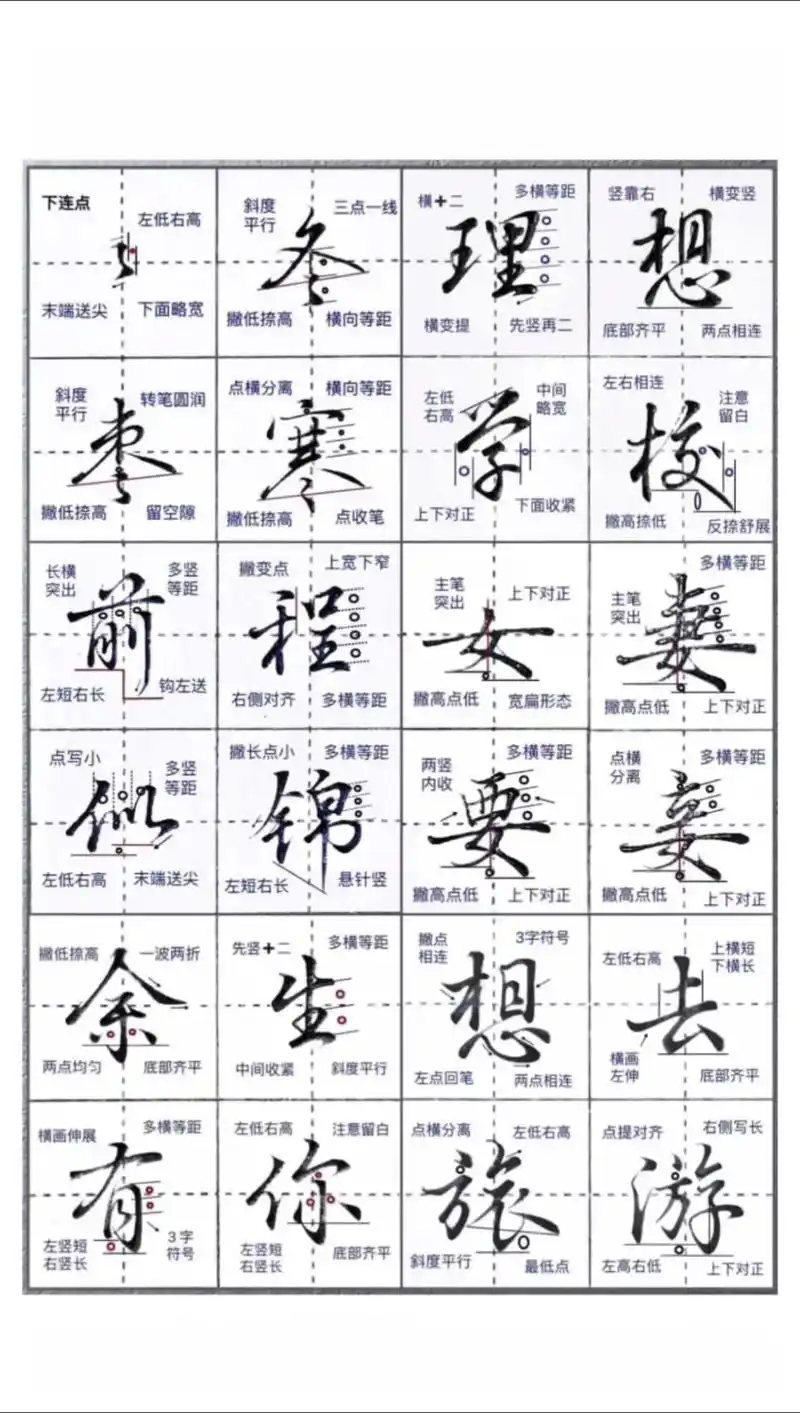 下连点
左低右高
末端送尖
下面略宽
斜度
平行
三点一线
冬
撇低捺高
横向等距
横+二
多横等距
理
横变提
先竖再二
竖靠右
横变竖
想
底部齐平
两点相连
斜度
平行
转笔圆润
枣
撇低捺高
留空隙
点横分离
横向等距
寒
撇低捺高
点收笔
左低
右高
中间
略宽
学
上下对正
下面收紧
左右相连
注意
留白
校
撇高捺低
反捺舒展
长横
突出
多竖
等距
前
左短右长
钩左送
撇变点
上宽下窄
程
右侧对齐
多横等距
主笔
突出
上下对正
女
撇高点低
宽扁形态
主笔
突出
多横等距
妻
撇高点低
上下对正
点写小
多竖
等距
似
左低右高
末端送尖
撇长点小
多横等距
锦
左短右长
悬针竖
两竖
内收
多横等距
要
撇高点低
上下对正
点横
分离
多横等距
妾
撇高点低
上下对正
撇低捺高
一波两折
余
两点均匀
底部齐平
先竖+二
多横等距
生
中间收紧
斜度平行
撇点
相连
3字符号
想
左点回笔
两点相连
左低右高
上横短
下横长
去
横画
左伸
底部齐平
横画伸展
多横等距
有
左竖短
右竖长
3字
符号
左低右高
注意留白
你
左竖短
右竖长
底部齐平
点横分离
左低右高
旅
斜度平行
最低点
点提对齐
右侧写长
游
左高右低
上下对正